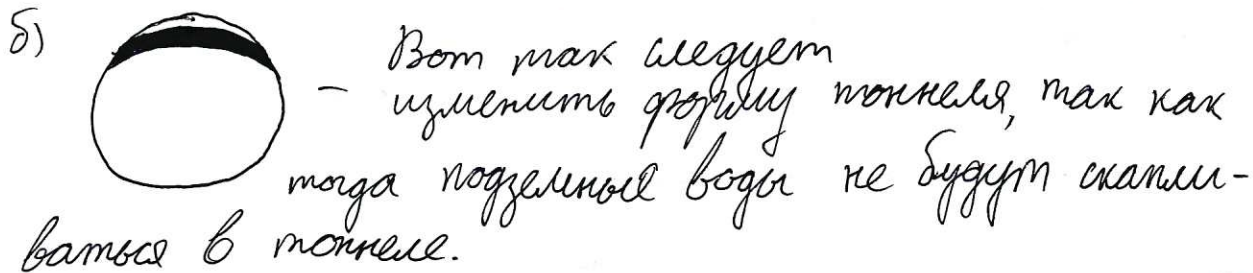 б)
– Вот так следует
изменить форму тоннеля, так как
тогда подземные воды не будут скапли-
ваться в тоннеле.